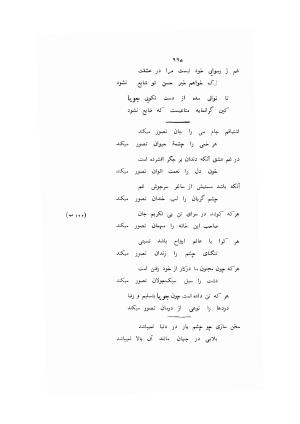 ۶۶۵
غم ز رسوائی خود نیست مرا در عشقت
لیک خواهم خبر حسن تو شایع نشود
تا توانی مده از دست نکوی جویا
کاین گرانمایه متاعیست که ضایع نشود
اشتیاقم جام می را جان تصور میکند
هر خمی را چشمهٔ حیوان تصور میکند
در غم عشق آنکه دندان بر جگر افشرده است
خون دل را نعمت الوان تصور میکند
آنکه باشد مستیش از ساغر سرجوش غم
چشم گریان را لب خندان تصور میکند
هر که در سرای تن بی تکریم جان
(۱۰۰ ب)
صاحب این خانه را مهمان تصور میکند
هر کرا با عالم ارواح باشد نسبتی
تنگنای چشم را زندان تصور میکند
هر که چون مجنون ما درکار از خود رفتن است
دشت را سیل سبکجولان تصور میکند
هر که تن داده است چون جویا بتسلیم و رضا
دردها را نوعی از درمان تصور میکند
سخن سازی چو چشم یار در دنیا نمیباشد
بلایی در جهان مانند آن بالا نمیباشد